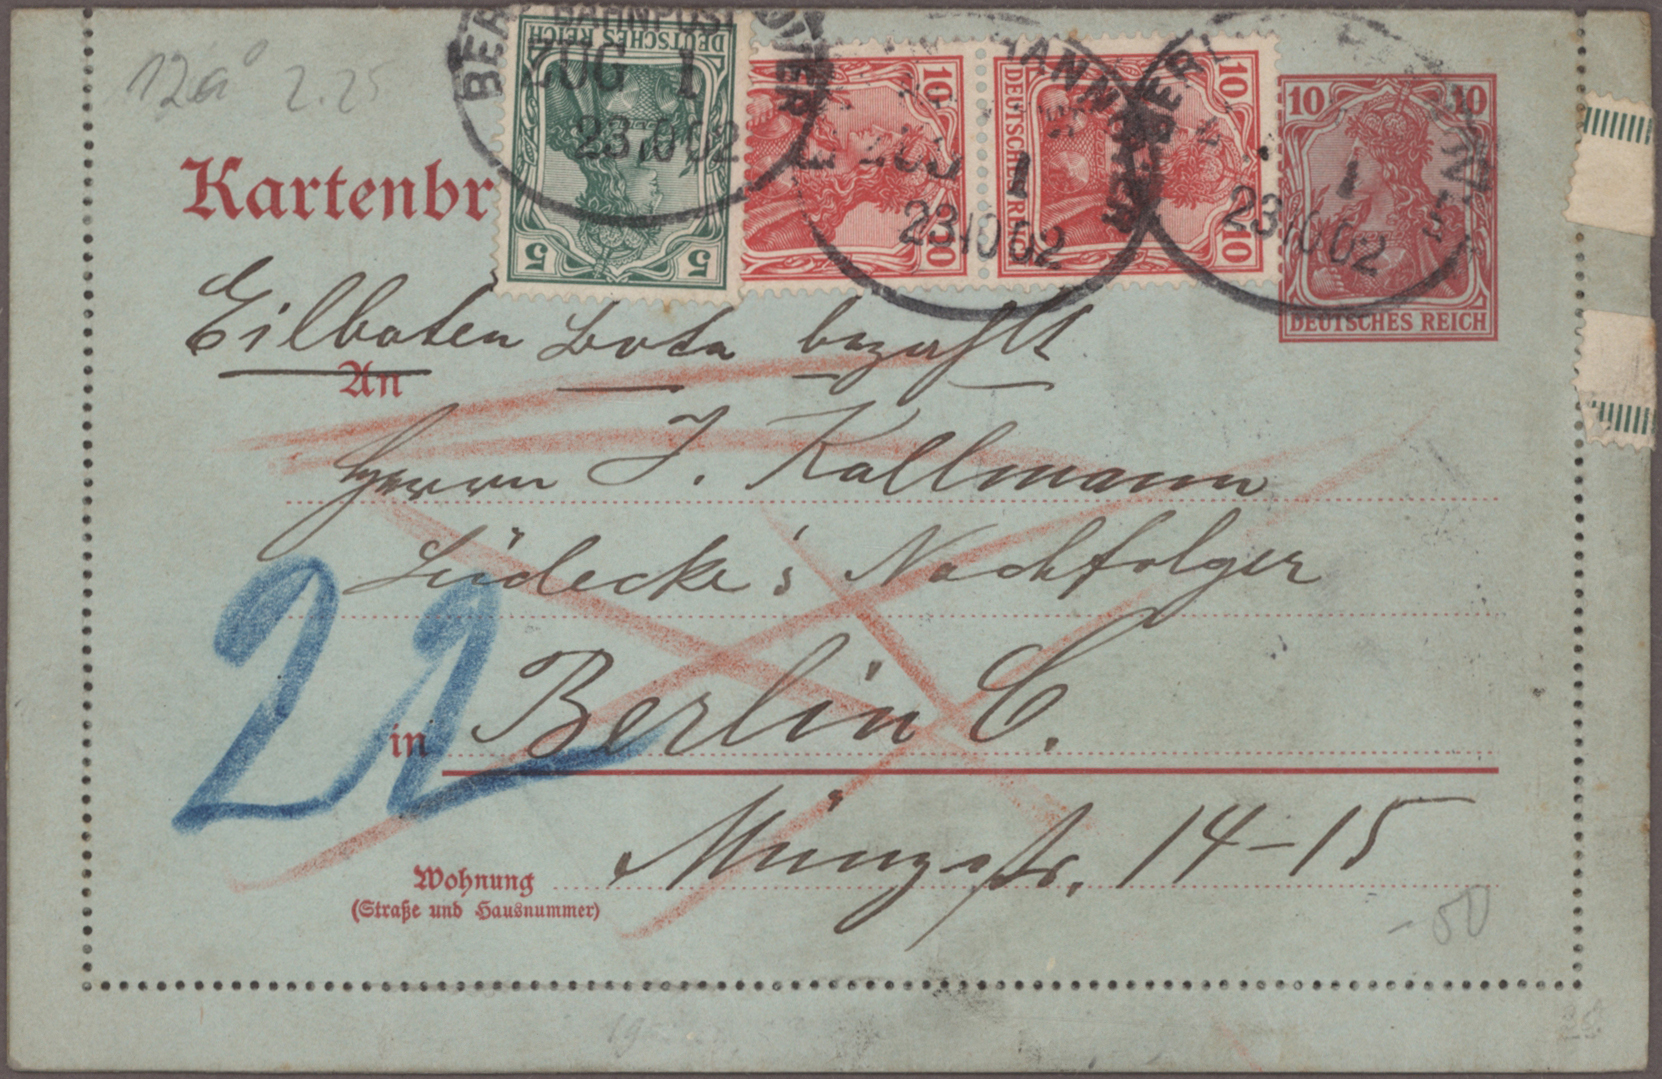 12a 2.25
BAHNPOST
ZUG 1
23 10 02
DEUTSCHES REICH
5 5
10 10
DEUTSCHES REICH
10 10
HANNOVER
1
23 10 02
1
23 10 02
10 10
DEUTSCHES REICH
Kartenbr
Eilboten Bote bezahlt
An
Herrn J. Kallmann
Lüdecke's Nachfolger
22
in Berlin C.
Münzstr. 14-15
Wohnung
(Straße und Hausnummer)
-50